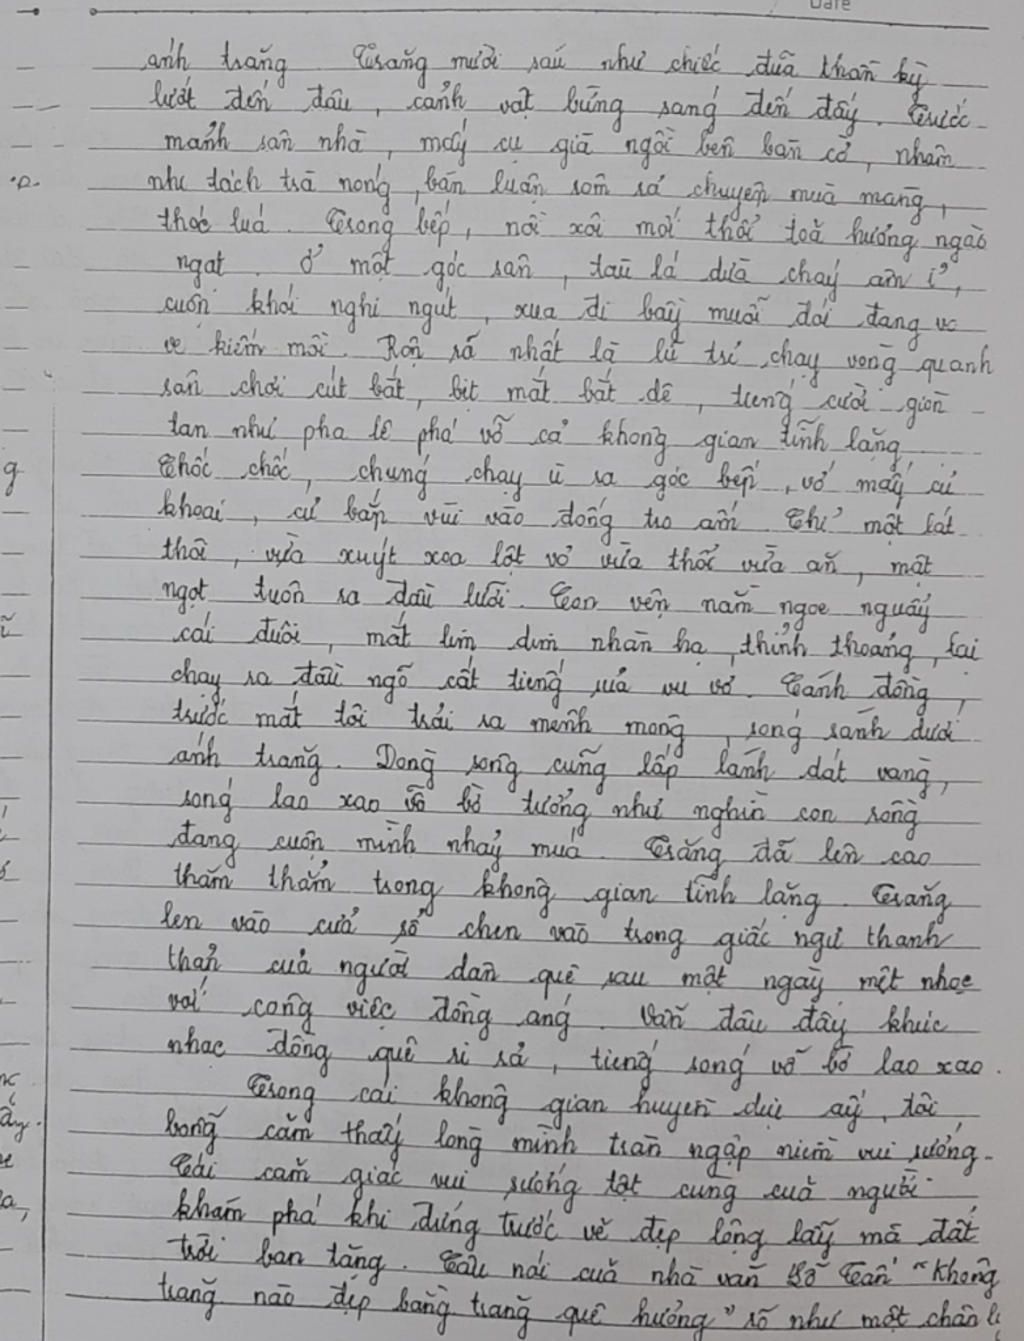 Date
ánh trăng. Trăng mười sáu như chiếc đũa thần kỳ
lướt đến đâu, cảnh vật bừng sáng đến đấy. Trước
mảnh sân nhà, mấy cụ già ngồi bên bàn cờ, nhâm
nhi tách trà nóng, bàn luận rôm rả chuyện mùa màng,
thóc lúa. Trong bếp, nồi xôi mới thổi toả hương ngào
ngạt. Ở một góc sân, tàu lá dừa cháy âm ỉ,
cuộn khói nghi ngút, xua đi bầy muỗi đói đang vo
ve kiếm mồi. Rộn rã nhất là lũ trẻ chạy vòng quanh
sân chơi cút bắt, bịt mắt bắt dê, tiếng cười giòn
tan như pha lê phá vỡ cả không gian tĩnh lặng.
Chốc chốc, chúng chạy ù ra góc bếp, vớ mấy củ
khoai, cứ bắp vùi vào đống tro ấm. Chỉ một lát
thôi, vừa xuýt xoa lột vỏ vừa thổi vừa ăn, mật
ngọt tuôn ra đầu lưỡi. Con vện nằm ngoe nguẩy
cái đuôi, mắt lim dim nhàn hạ, thỉnh thoảng, lại
chạy ra đầu ngõ cất tiếng sủa vu vơ. Cánh đồng,
trước mắt tôi trải ra mênh mông, sóng sánh dưới
ánh trăng. Dòng sông cũng lấp lánh dát vàng,
sóng lao xao vỗ bờ tưởng như nghìn con sông
đang cuộn mình nhảy múa. Trăng đã lên cao
thăm thẳm trong không gian tĩnh lặng. Trăng
len vào cửa sổ chen vào trong giấc ngủ thanh
thản của người dân quê sau một ngày mệt nhọc
với công việc đồng áng. Văn đâu đây khúc
nhạc đồng quê ri rả, tiếng sóng vỗ bờ lao xao.
Trong cái không gian huyền dịu ấy, tôi
bỗng cảm thấy lòng mình tràn ngập niềm vui sướng.
Cái cảm giác vui sướng tột cùng của người
khám phá khi đứng trước vẻ đẹp lộng lẫy mà đất
trời ban tặng. Câu nói của nhà văn "Không
trăng nào đẹp bằng trăng quê hương" rõ như một chân lí